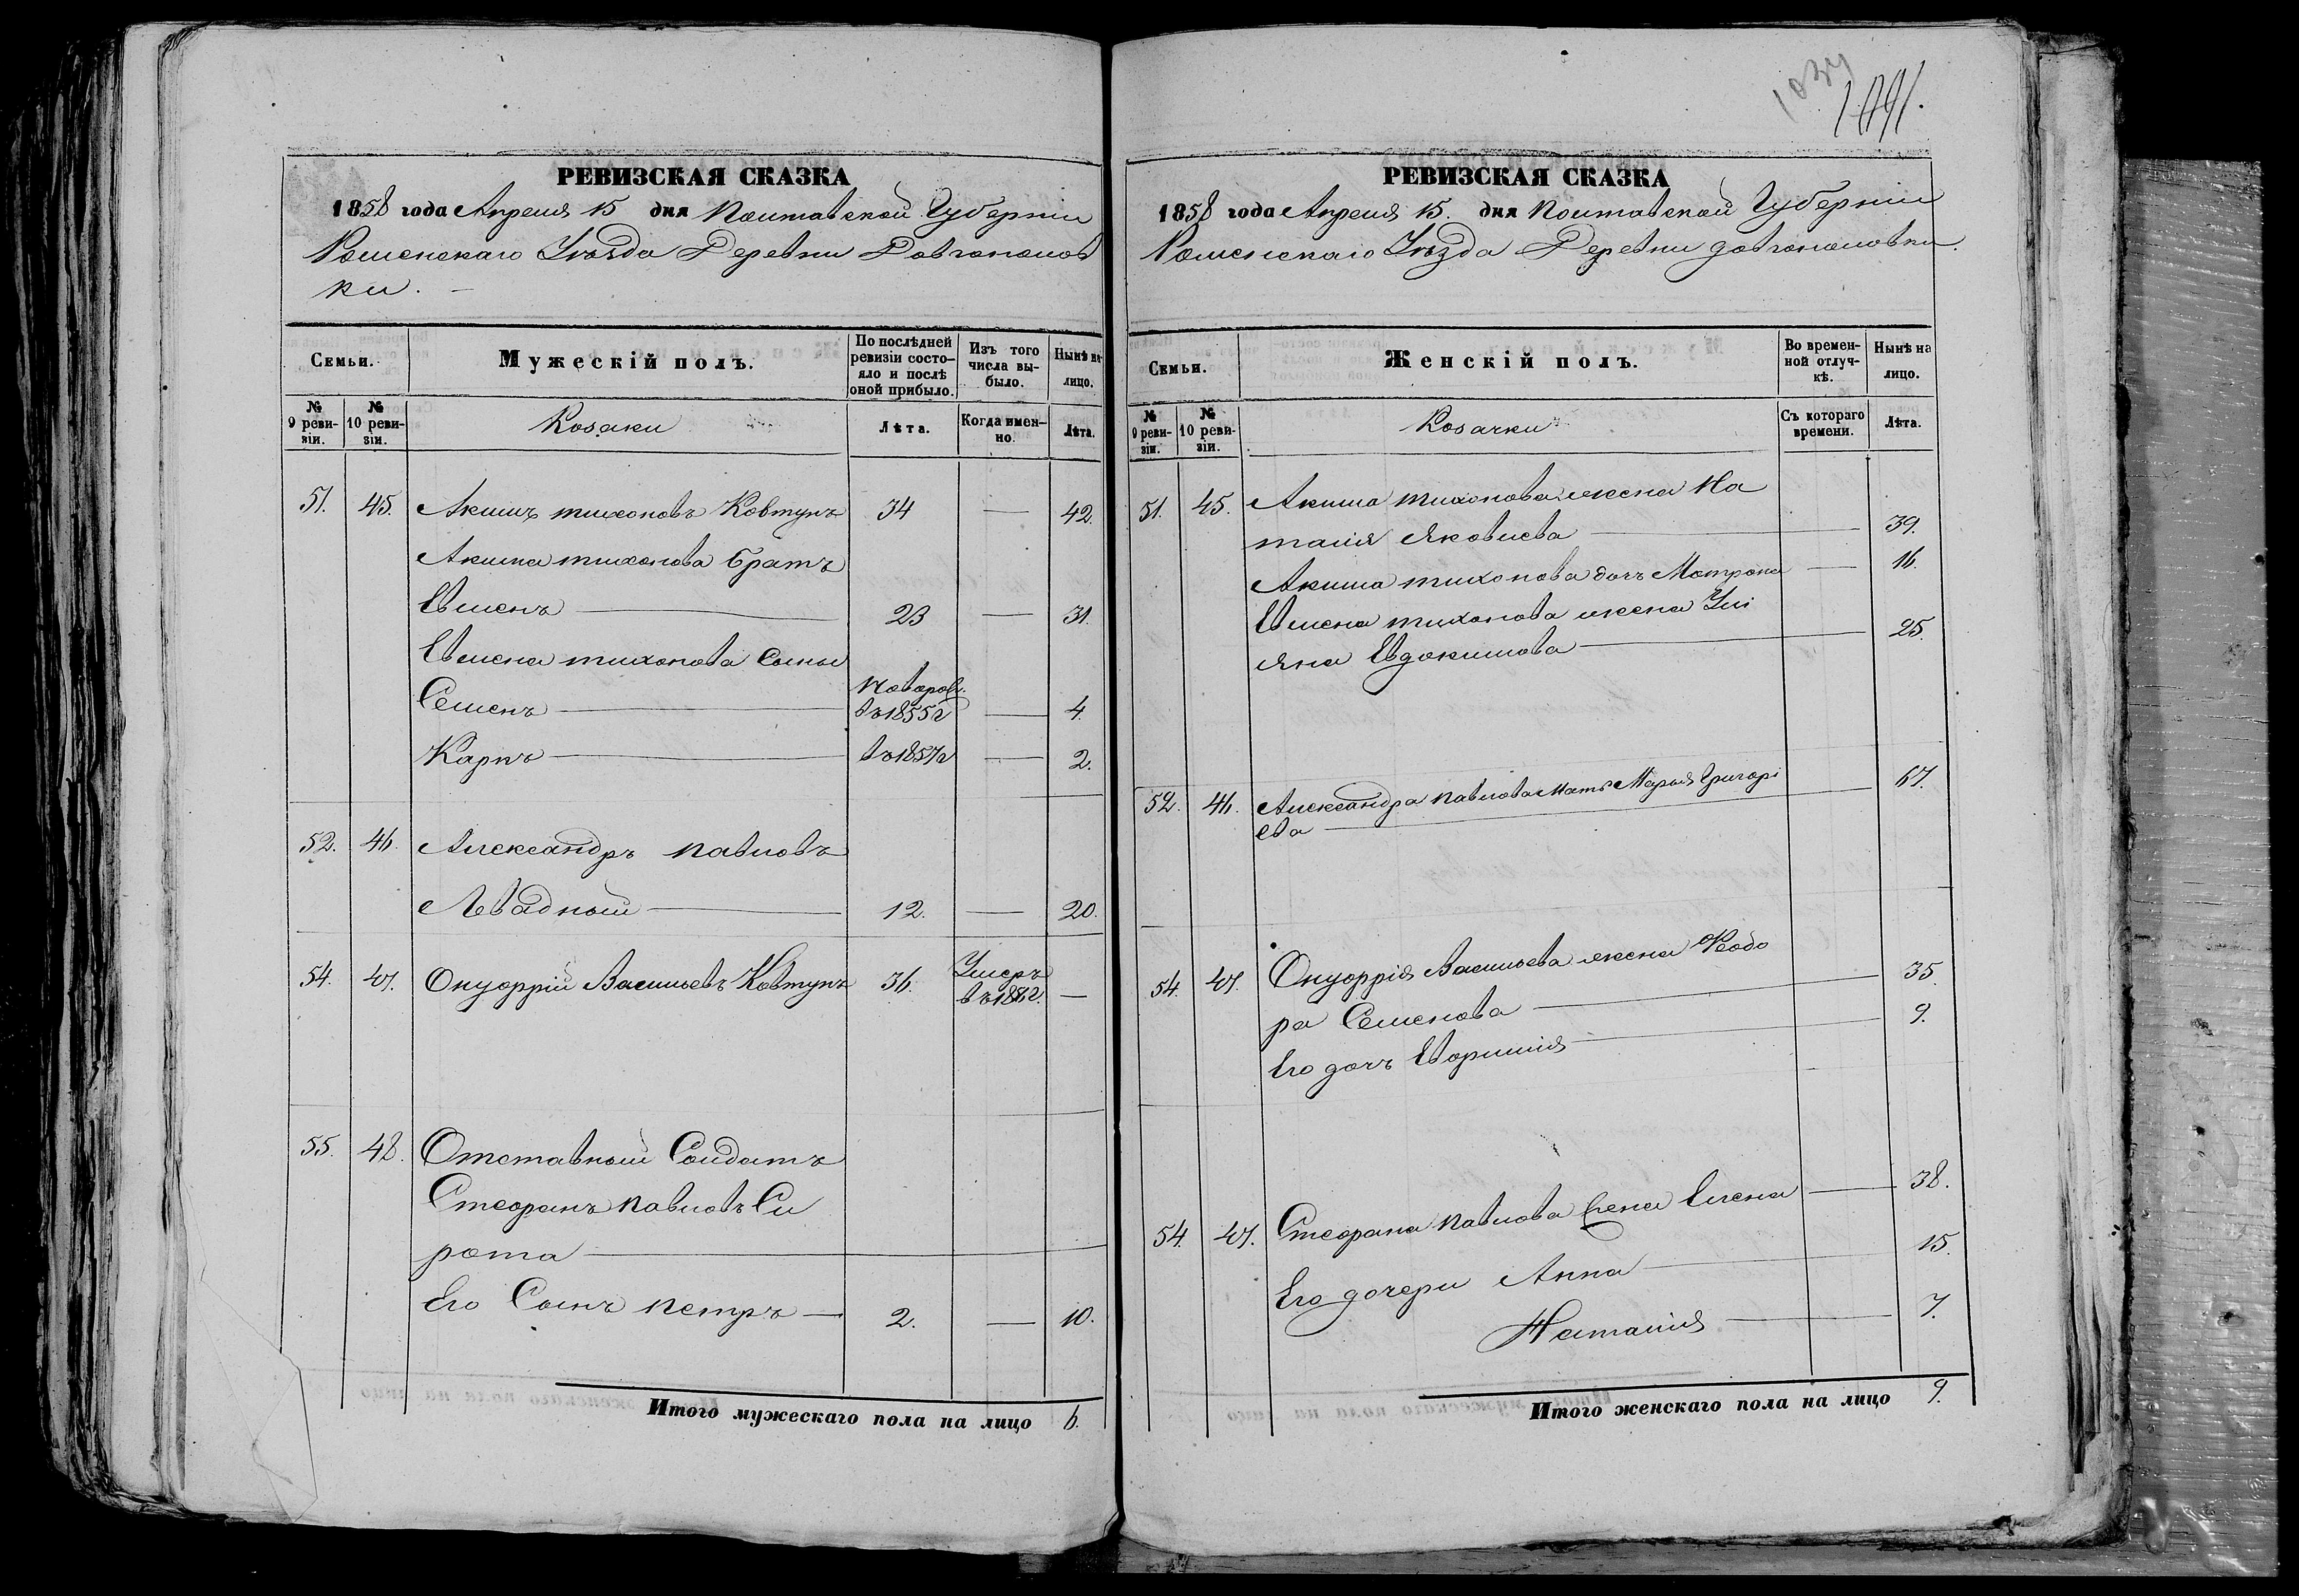 РЕВИЗСКАЯ СКАЗКА
1858 года Апреля 15 дня Полтавской Губерніи
Роменскаго Уѣзда Деревни Довгополов
ки.
Семьи.
Мужескій полъ.
По послѣдней ревизіи состояло и послѣ оной прибыло.
Изъ того числа выбыло.
Нынѣ на лицо.
№ 9 ревизіи.
№ 10 ревизіи.
Козаки
Лѣта.
Когда именно.
Лѣта.
51. 45. Акимъ тихоновъ Ковтунъ 34 — 42.
Акима тихонова братъ
Евменъ — 23 — 31.
Евмена тихонова Сыны
Семенъ — Новоро. въ 1855г — 4.
Карпъ — въ 1857г — 2.
52. 46. Александръ павловъ
Левадный — 12. — 20.
54. 47. Онуфрій Васильевъ Ковтунъ 36. Умеръ въ г. —
55. 48. Отставный Солдатъ
Стефанъ павловъ Си
рота
Его Сынъ петръ — 2. — 10.
Итого мужескаго пола на лицо 6.
1034
1041.
РЕВИЗСКАЯ СКАЗКА
1858 года Апреля 15. дня Полтавской Губерніи
Роменскаго Уѣзда Деревни довгополовки.
Семьи.
Женскій полъ.
Во временной отлучкѣ.
Нынѣ на лицо.
№ 9 ревизіи.
№ 10 ревизіи.
Козачки
Съ котораго времени.
Лѣта.
51. 45. Акима тихонова жена На
талія Яковлева — 39.
Акима тихонова дочъ Мотрона — 16.
Евмена тихонова жена Улі
яна Евдокимова — 25.
52. 46. Александра павлова мать Марья Григорі — 67.
ева
54. 47. Онуфрія Васильева жена Феодо
ра Семенова — 35.
Его дочъ Евфимія — 9.
54. 47. Стефана павлова жена Елена — 38.
Его дочери Анна — 15.
Наталія — 7.
Итого женскаго пола на лицо 9.